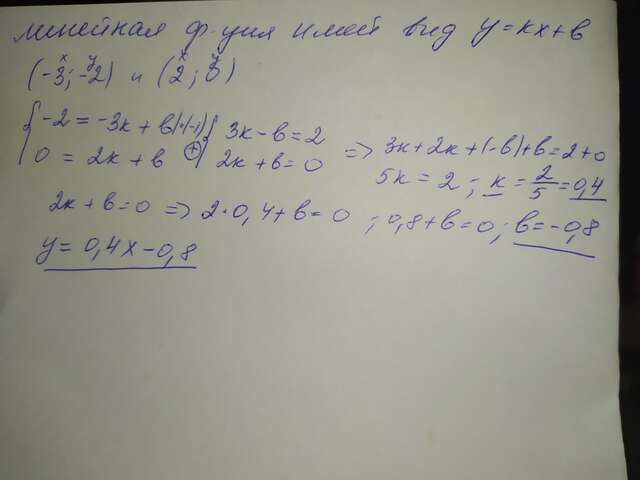 линейная ф-уия имеет вид y=kx+b
(-3; -2) и (2; 0)
x y x y
{-2 = -3k + b|·(-1) {3k-b=2
{0 = 2k + b ⊕ {2k+b=0 => 3k+2k+(-b)+b=2+0
5k = 2 ; k = 2/5 = 0,4
2k+b=0 => 2·0,4+b=0 ; 0,8+b=0; b=-0,8
y = 0,4x-0,8